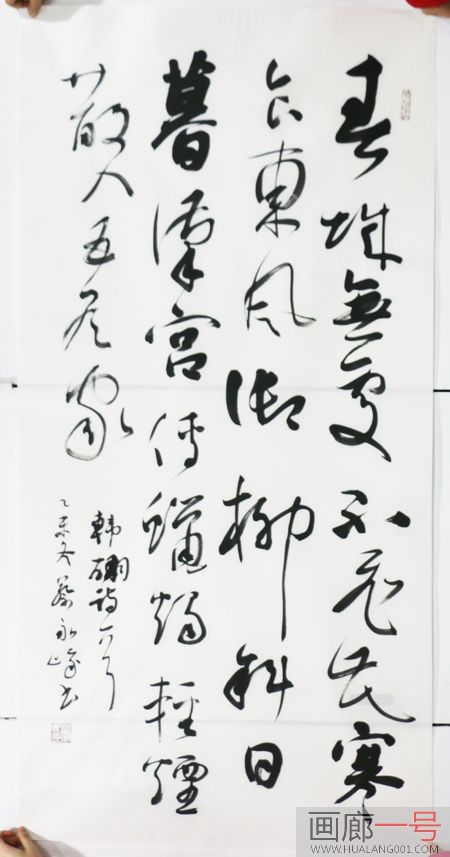 春城無處不飛花寒
食東風御柳斜日
暮漢宮傳蠟燭輕煙
散入五侯家
韩翃詩
乙未冬蔡永峰书
画廊一号
WWW.HUALANG001.COM